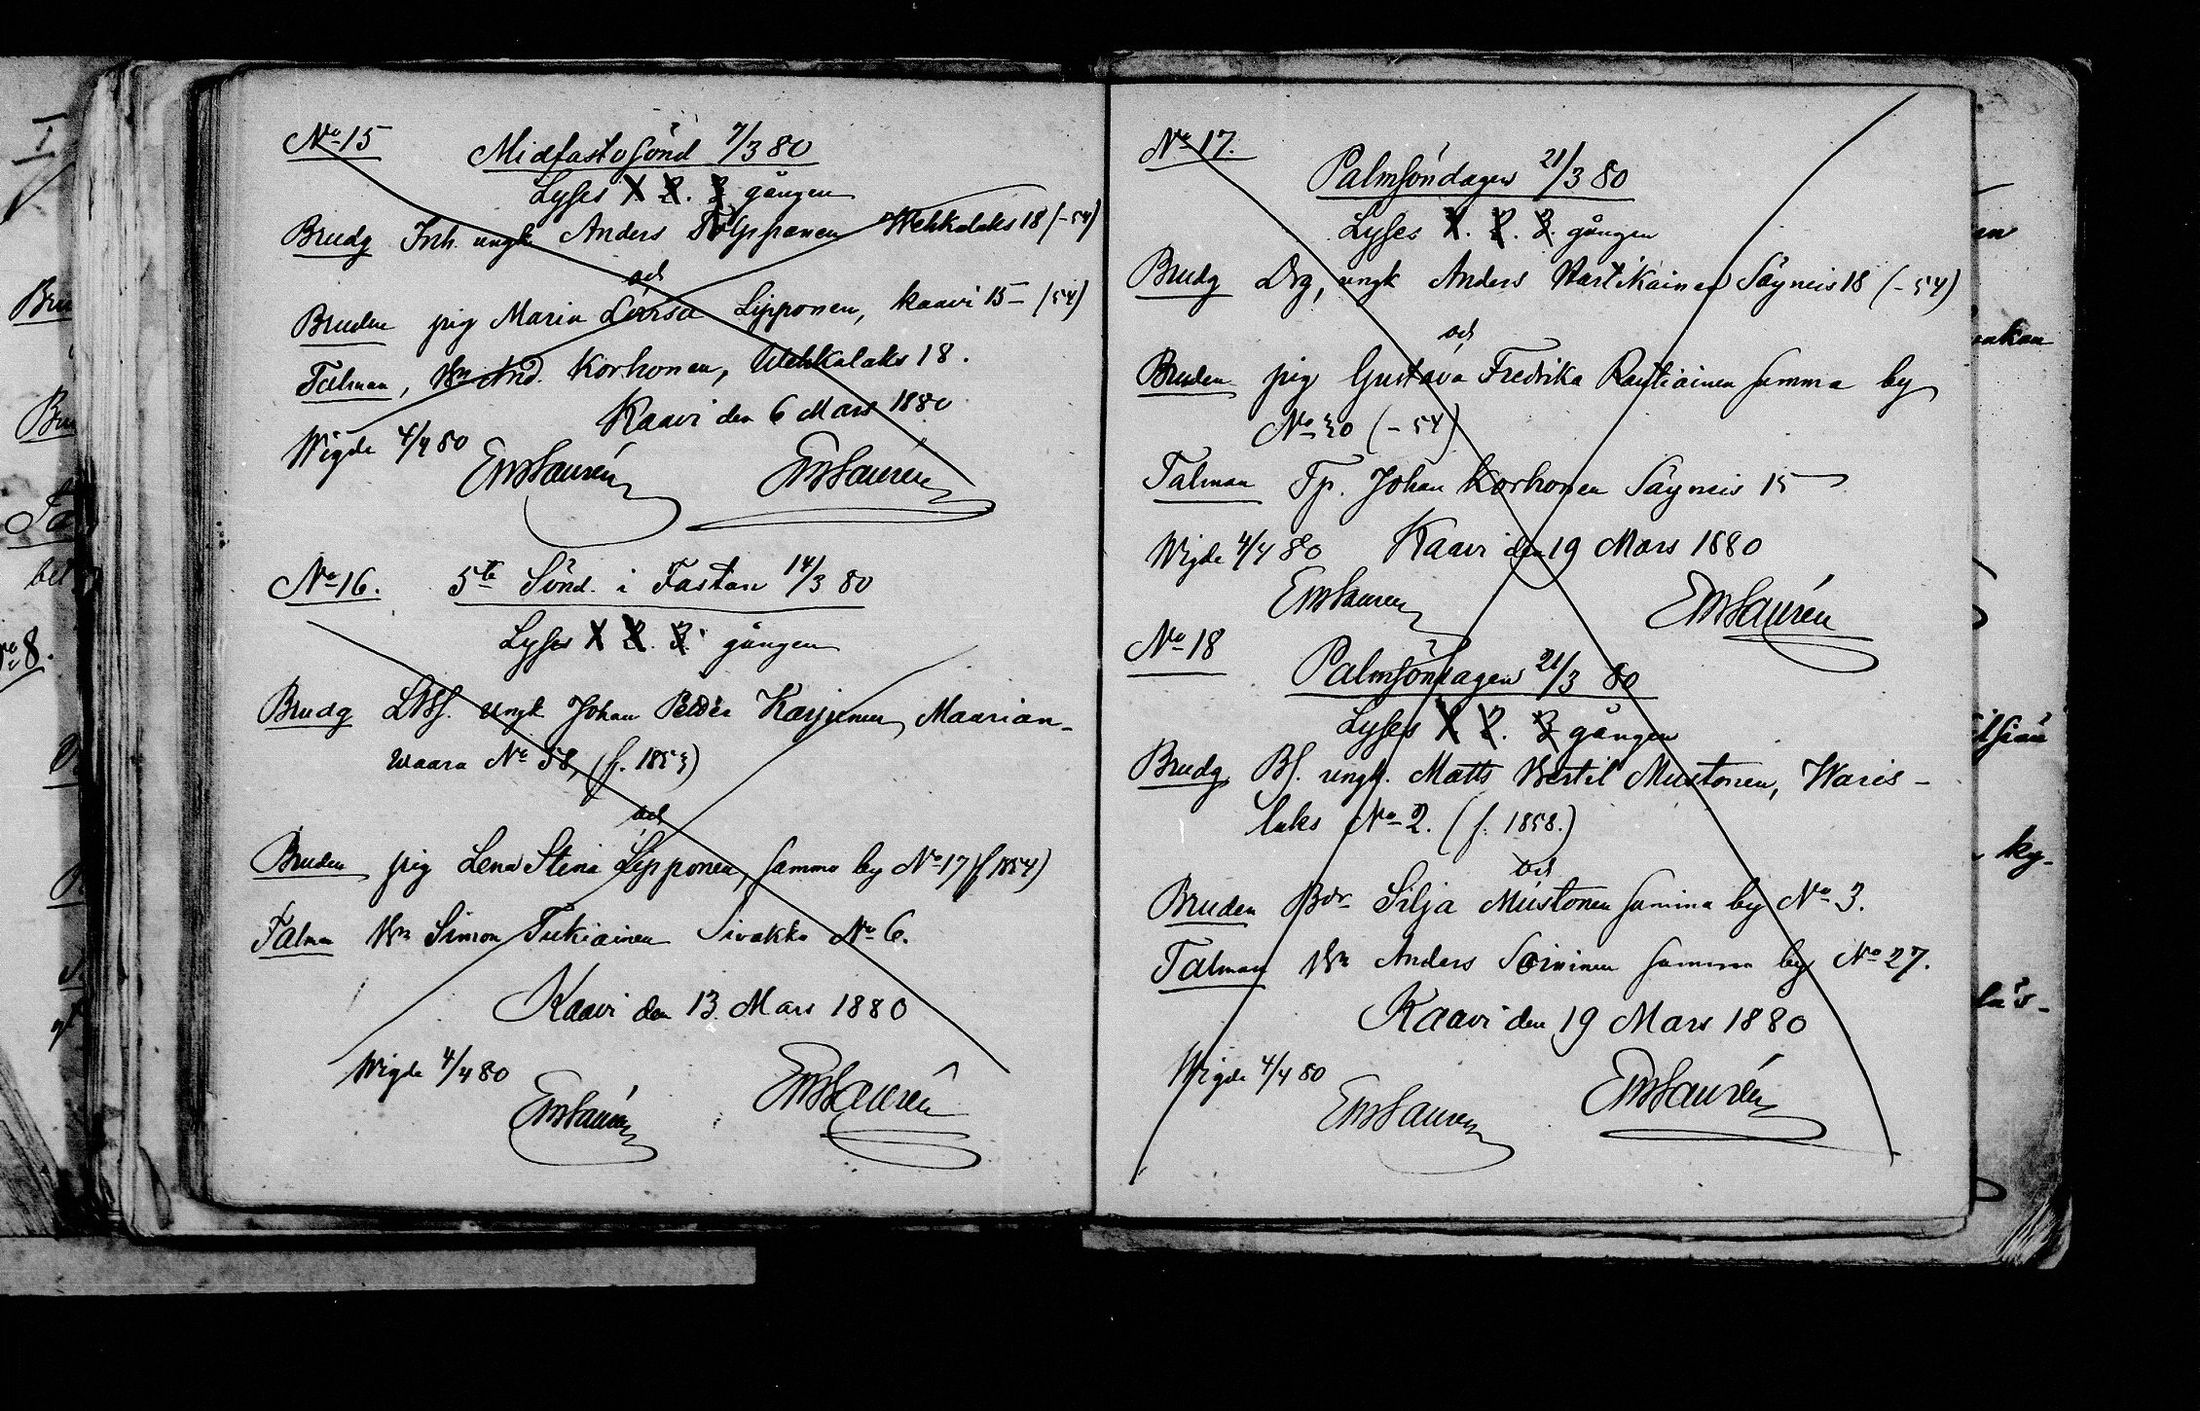 No 15
Midfasto sönd 7/3 80
Lyses 1. 2. 3 gången
Brudg Inh. ungk Anders Wehkalaks 18 (-54)
och
Bruden pig Maria Lovisa Lipponen, Kaavi 15 - (54)
Talman, Bn And. Korhonen, Wehkalaks 18.
Kaavi den 6 Mars 1880
Wigde 4/4 80
EWLaurén EWLaurén
No 16. 5te Sönd. i Fastan 14/3 80
Lyses 1 2. 3. gången
Brudg ungk Johan Petter Karjunen, Maarian-
waara No 58, (f. 1853)
och
Bruden pig Lena Stina Lipponen, samma by No 17 (f 1854)
Talman Bn Simon Tukiainen Sivakka No 6.
Kaavi den 13 Mars 1880
Wigde 4/4 80
EWLaurén EWLaurén
No 17.
Palmsöndagen 21/3 80
Lyses 1. 2. 3. gången
Brudg Drg, ungk Anders Martikainen Säyneis 18 (-54)
och
Bruden pig Gustava Fredrika Rautiainen samma by
No 30 (-54)
Talman Tp. Johan Korhonen Säyneis 15
Wigde 4/4 80 Kaavi den 19 Mars 1880
EWLaurén EWLaurén
No 18
Palmsöndagen 21/3 80
Lyses 1. 2. 3 gången
Brudg Bs. ungk. Matts Bertil Mustonen, Waris-
laks No 2. (f. 1858.)
och
Bruden Bdr Silja Mustonen samma by No 3.
Talman Bn Anders Soininen samma by No 27.
Kaavi den 19 Mars 1880
Wigde 4/4 80
EWLaurén EWLaurén